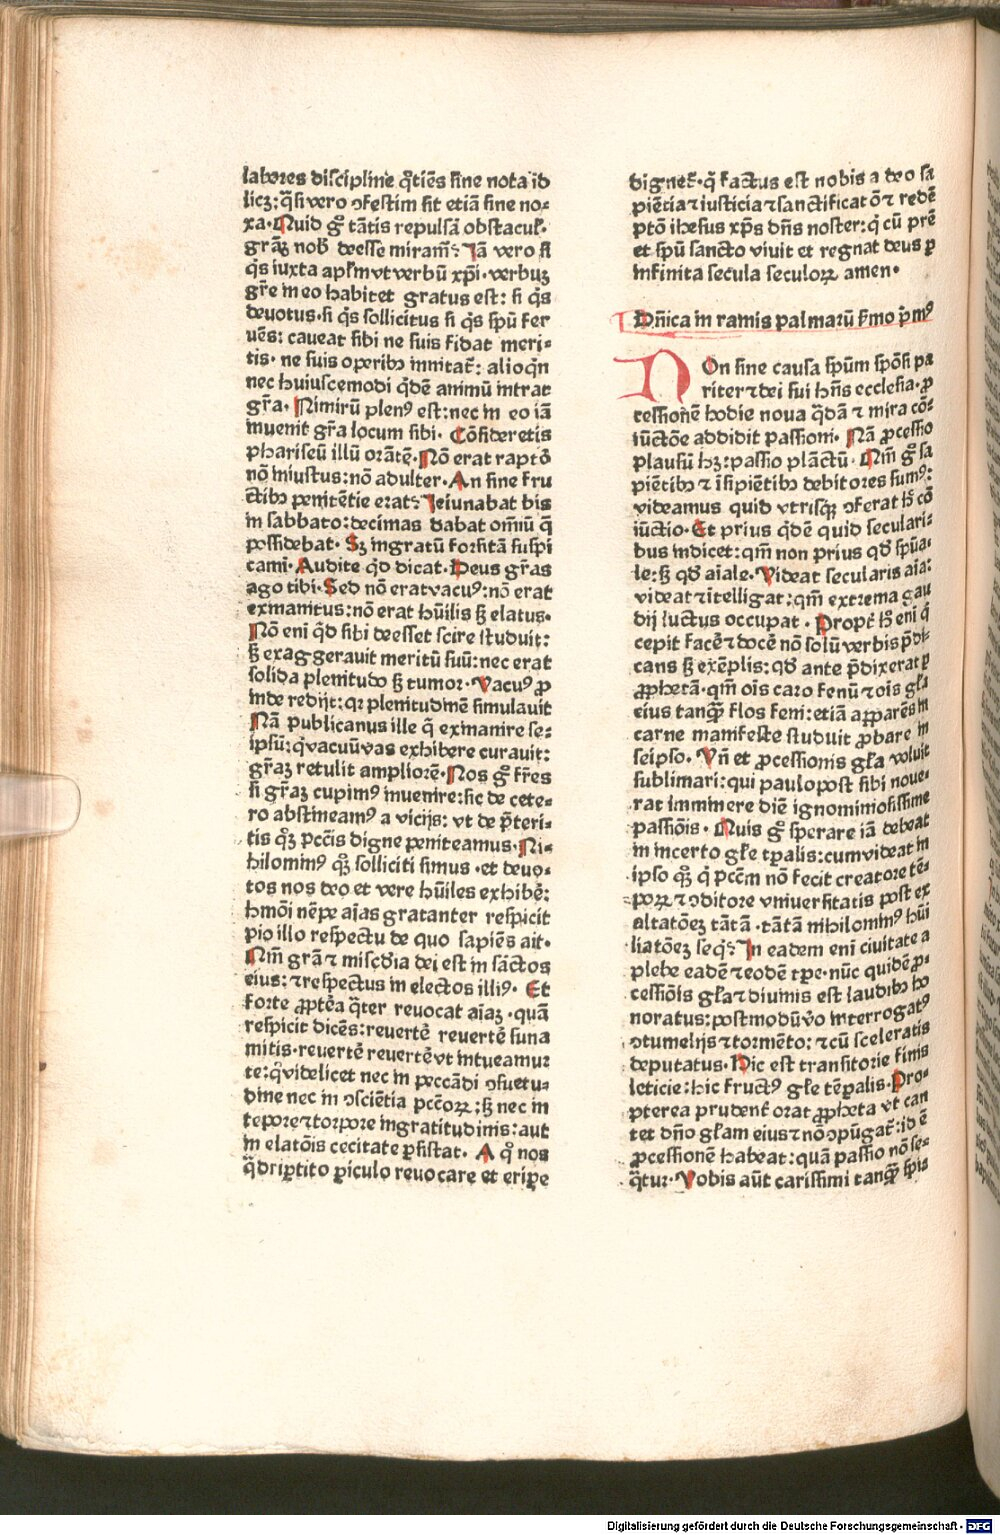 labores discipline q̄tiēs sine nota id
licꝫ: q̄si vero ↄfestim sit etiā sine no⸗
xa. Quid gͦ tātis repulsā obstacul̕.
grāꝫ nob̄ deesse miramᷣ? Jā vero si
q̄s iuxta apl̄m vt verbū xp̄i. verbuꝫ
gr̄e in eo habitet gratus est: si q̄s
deuotus. si q̄s sollicitus si q̄s sp̄u fer
uēs: caueat sibi ne suis fidat meri⸗
tis. ne suis operibꝰ innitatᷣ: alioq̄n
nec huiuscemodi q̄dē animū intrat
gr̄a. Nimirū plenꝰ est: nec in eo iā
inuenit gr̄a locum sibi. Cōsideretis
phariseū illū orātē. Nō erat raptō
nō iniustus: nō adulter. An sine fru
ctibꝰ penitētie erat? Jeiunabat bis
in sabbato: decimas dabat omīū q̄
possidebat. Sꝫ ingratū forsitā suspi
cami. Audite qd̄ dicat. Deus gr̄as
ago tibi. Sed nō erat vacuꝰ: nō erat
exinanitus: nō erat hūilis sꝫ elatus.
Nō eni qd̄ sibi deesset scire studuit:
sꝫ exaggerauit meritū suū: nec erat
solida plenitudo sꝫ tumor. Vacuꝰ ꝓ
inde redijt: qꝛ plenitudinē simulauit
Nā publicanus ille q̄ exinanire se⸗
ipsū: q̄ vacuū vas exhibere curauit:
gr̄aꝫ retulit ampliorē. Nos gͦ fr̄es
si gr̄aꝫ cupimꝰ inuenire: sic de cete⸗
ro abstineamꝰ a vicijs: vt de p̄teri⸗
tis qͦꝫ pccīs digne peniteamus. Ni⸗
hilominꝰ qͦꝫ solliciti simus. et deuo⸗
tos nos deo et vere hūiles exhibēꝫ:
hmōi nēpe aīas gratanter respicit
pio illo respectu de quo sapiēs ait.
Qm̄ grā ⁊ misc̄dia dei est in sāctos
eius: ⁊ respectus in electos illiꝰ. Et
forte ꝓptēa q̄ter reuocat aīaꝫ. quā
respicit dicēs: reuertē reuertē suna
mitis. reuertē reuertē vt intueamur
te: q̄ videlicet nec in peccādi ↄsuetu⸗
dine nec in ↄsciētia pctōꝝ: sꝫ nec in
tepore ⁊ torpore ingratitudinis: aut
in elatōis cecitate ꝑsistat. A qͦ nos
q̄dripꝛtito ꝑiculo reuocare et eripe
dignetᷣ. q̄ factus est nobis a deo sa
piētia ⁊ iusticia ⁊ sanctificatō ⁊ redē
ptō ihesus xp̄s dn̄s noster: q̄ cū pr̄e
et sp̄u sancto viuit et regnat deus ꝑ
infinita secula seculoꝝ amen.
Dn̄ica in ramis palmarū s̄mo p̄mꝰ
NOn sine causa sp̄um spōsi pa
riter ⁊ dei sui hn̄s ecclesia. ꝓ
cessionē hodie noua q̄dā ⁊ mira cō⸗
iūctōe addidit passioni. Nā ꝓcessio
plausū hꝫ: passio plāctū. Qm̄ gͦ sa
piētibꝰ ⁊ īsipiētibꝰ debitores sumꝰ:
videamus quid vtrisqꝫ ↄferat hͦ cō
iūctio. Et prius q̄dē quid seculari⸗
bus indicet: qm̄ non prius qd̄ sp̄ua⸗
le: sꝫ qd̄ aīale. Videat secularis aīa:
videat ⁊ ītelligat: qm̄ extrema gau
dij luctus occupat. Propt̕ hͦ eni q̄
cepit facē ⁊ docē nō solū verbis p̄di⸗
cans sꝫ exēplis: qd̄ ante p̄dixerat ꝑ
ꝓphetā. qm̄ oīs caro fenū ⁊ oīs gl̄a
eius tanqꝫ flos feni: etiā apparēs in
carne manifeste studuit ꝓbare in
seipso. Vn̄ et ꝓcessionis gl̄a voluit
sublimari: qui paulo post sibi noue⸗
rat imminere diē ignominiosissime
passiōis. Quis gͦ sperare iā debeat
in incerto gl̄e tp̄alis: cum videat in
ipso qͦꝫ q̄ pcc̄m nō fecit creatore tē⸗
poꝝ ⁊ ↄditore vniuersitatis post ex
altatōeꝫ tātā. tātā nihilominꝰ hūi
liatōeꝫ seq̄? In eadem eni ciuitate a
plebe eadē ⁊ eodē tꝑe. nūc quidē ꝓ⸗
cessiōis gl̄a ⁊ diuinis est laudibꝰ ho
noratus: postmodū v̄o interrogatꝰ
ↄtumelijs ⁊ tormēto: ⁊ cū sceleratis
deputatus. Hic est transitorie finis
leticie: hic fructꝰ gl̄e tēꝑalis. Pro⸗
pterea prudent̕ orat ꝓpheta vt can
tet dn̄o gl̄am eius ⁊ nō ↄpūgatᷣ: id ē
ꝓcessionē habeat: quā passio nō se⸗
q̄tur. Vobis aūt carissimi tanqꝫ sp̄is
Digitalisierung gefördert durch die Deutsche Forschungsgemeinschaft - DFG